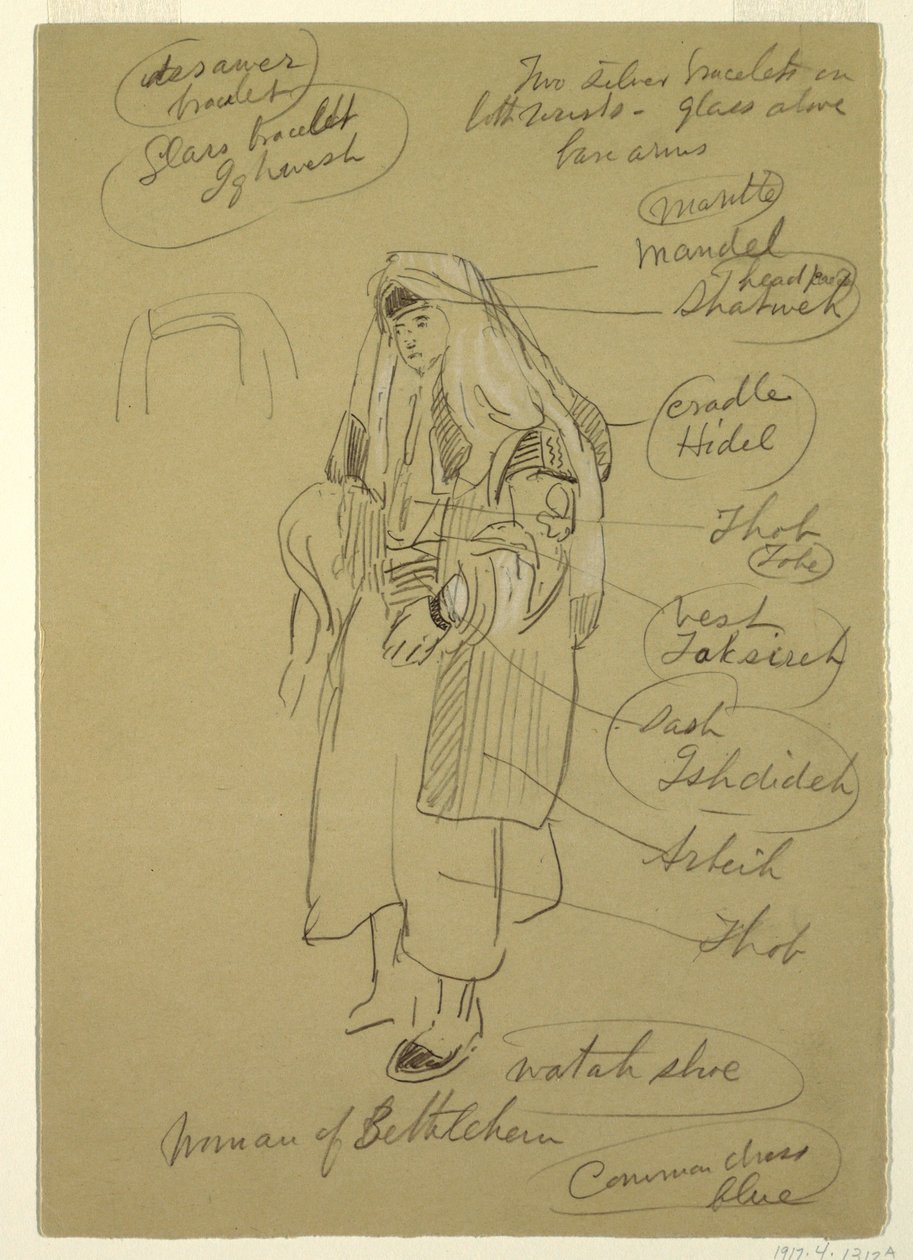 bracelet
Glass bracelet
Ighwesh
Two silver bracelets on
both wrists - glass above
bare arms
Mantle
Mandel
head
Shatweh
Cradle
Hidel
Thob
Tobe
Vest
Taksireh
Sash
Ishdideh
Arbeih
Thob
Watah shoe
Woman of Bethlehem
Common dress
blue
1917.4.1312A